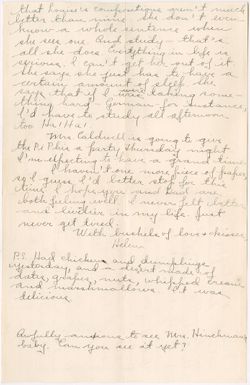 that house's compositions aren't much
better than mine. She don't even
know a whole sentence when
she sees one and study - that is
all she does. Everything in life is
serious. I can't get her out of it.
She says she just has to have a
certain amount of sleep. She
says that if I was taking some-
thing hard, German for instance,
I'd have to study all afternoon
too. Ha! Ha!
Mrs. Caldwell is going to give
the Pi Phis a party Thursday night
I'm expecting to have a grand time.
I haven't one more piece of paper,
so I guess I'd better stop for this
time. I hope you and Dad are
both feeling well. I never felt better
and livelier in my life. Just
never get tired.
With bushels of love & kisses,
Helen
P.S. Had chicken and dumplings
yesterday, and a desert made of
dates, grapes, nuts, whipped cream
and marshmallows. It was
delicious.
Awfully anxious to see Mrs. Hinchman's
baby. Can you see it yet?